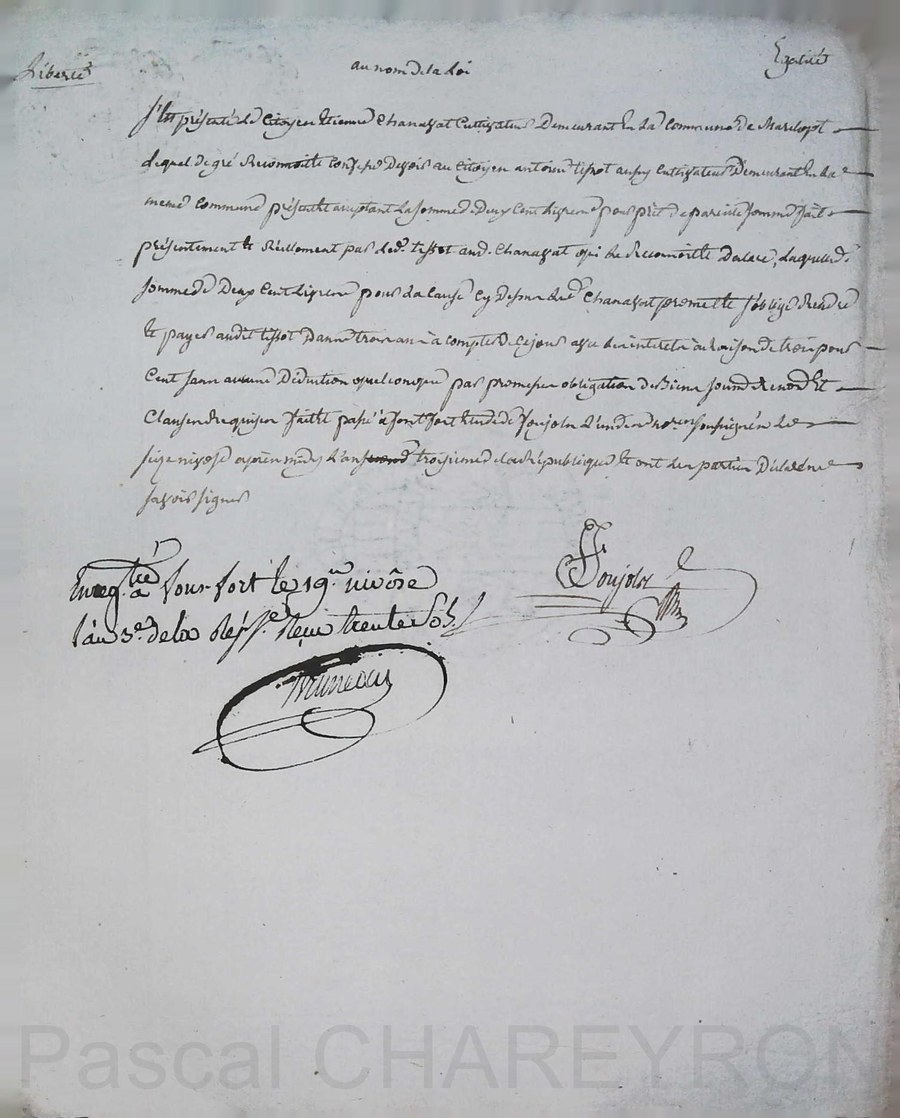 Liberté au nom de la Loi Egalité
S'est présenté le Citoyen Etienne Chanavat Cultivateur Demeurant En la Commune de Marclopt
lequel de gré Reconnoite Confesse Devoir au Citoyen antoine tissot aussy Cultivateur Demeurant En la
meme Commune présent et acceptant La somme de deux Cent Livres pour prêt de pareille somme fait
présentement Et Réellement par led. tissot aud. Chanavat qui le Reconnoit Laquelle
somme de Deux Cent Livres pour la Cause Cy dessus led. Chanavat promet Et s'oblige Rendre
Et payer audit tissot Dans trois ans à Compter De Ce jour avec les interets à Raison de trois pour
Cent sans aucune Déduction quelconque par promesse obligation de Biens Soumis Renons Et
Clauses Requises fait Et passé à font fort Etude de foujols L'un des nores soussignés le
seize nivose après midy L'an troisieme de la République Et ont les parties Déclaré ne
savoir signer
Enregtré à Four fort le 19e nivôse
l'an 3e de la Répe. Reçu trente sols
Foujols
Nre
Bruneau
Pascal CHAREYRON